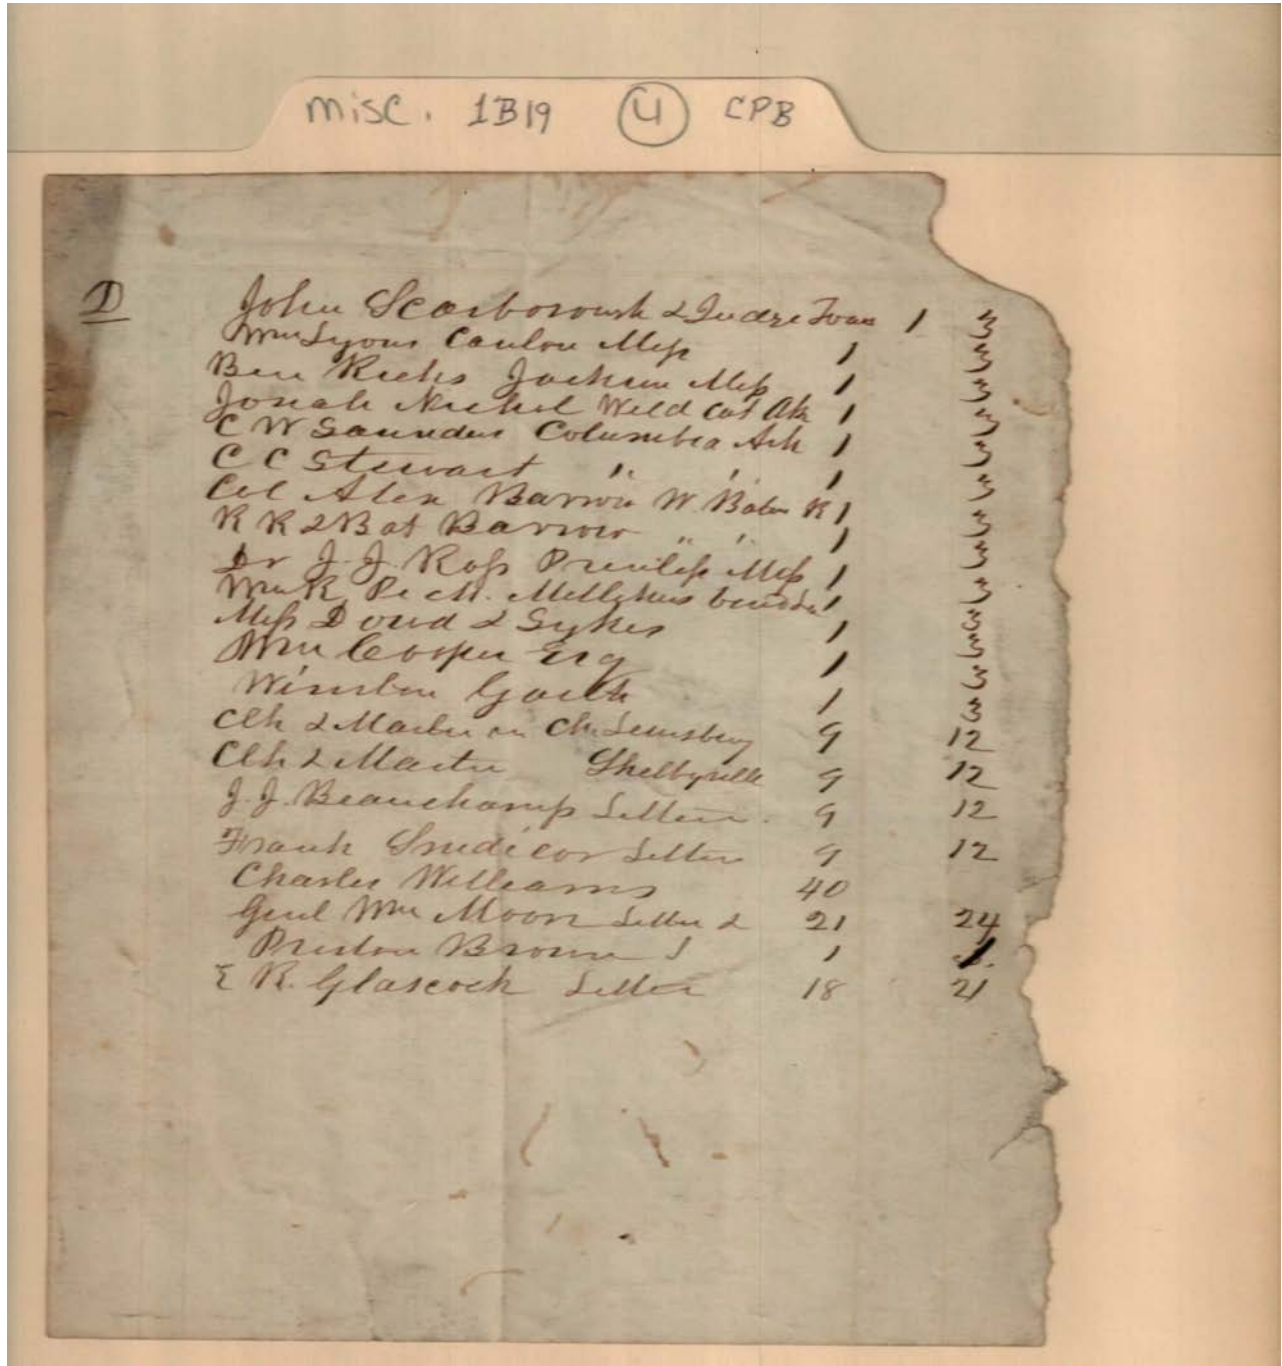 misc. 1B19 4 CPB
D John Scarborough & Judge 1 3
Wm Lyons Canton Miss 1 3
Ben Ricks Jackson Miss 1 3
Josiah Nichol Wild Cat Ak 1 3
C W Saunders Columbia Ark 1 3
C C Stewart " " 1 3
Col Alex Barrow W. Baton R 1 3
R R & Bat Barrow " " 1 3
Dr J. J. Ross Prentiss Miss 1 3
Wm R Peck. 1 3
Miss Doud & Sykes 1 3
Wm Cooper Esq 1 3
Winston 1 3
Clk & Master in Ch. Lewisburg 9 12
Clk & Master Shelbyville 9 12
J. J. Beauchamp Letter. 9 12
Frank Snedicor Letter 9 12
Charles Williams 40
Genl Wm Moore Letter 2 21 24
Preston Brown 1 1
E R. Glascock Letter 18 21